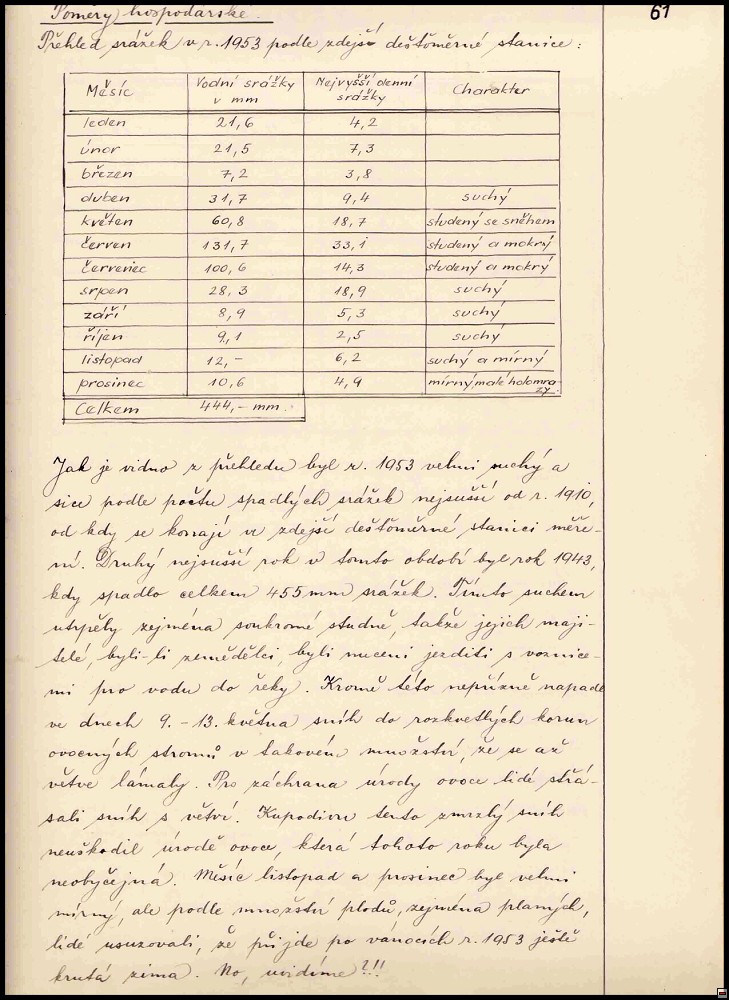 Poměry hospodářské.
61
Přehled srážek v r. 1953 podle zdejší dešťoměrné stanice:
Měsíc Vodní srážky v mm Nejvyšší denní srážky Charakter
leden 21,6 4,2
únor 21,5 7,3
březen 7,2 3,8
duben 31,7 9,4 suchý
květen 60,8 18,7 studený se sněhem
červen 131,7 33,1 studený a mokrý
červenec 100,6 14,3 studený a mokrý
srpen 28,3 18,9 suchý
září 8,9 5,3 suchý
říjen 9,1 2,5 suchý
listopad 12,- 6,2 suchý a mírný
prosinec 10,6 4,9 mírný, malé holomrazy.
Celkem 444,- mm.
Jak je vidno z přehledu byl r. 1953 velmi suchý a
sice podle počtu spadlých srážek nejsušší od r. 1910,
od kdy se konají v zdejší dešťoměrné stanici měře-
ní. Druhý nejsušší rok v tomto období byl rok 1943,
kdy spadlo celkem 455 mm srážek. Tímto suchem
utrpěly zejména soukromé studně, takže jejich maji-
telé, byli-li zemědělci, byli nuceni jezditi s voznice-
mi pro vodu do řeky. Kromě této nepřízně napadl
ve dnech 9.-13. května sníh do rozkvetlých korun
ovocných stromů v takovém množství, že se až
větve lámaly. Pro záchranu úrody ovoce lidé střá-
sali sníh s větví. Kupodivu tento zmrzlý sníh
neuškodil úrodě ovoce, která tohoto roku byla
neobyčejná. Měsíc listopad a prosinec byl velmi
mírný, ale podle množství plodů, zejména planých,
lidé usuzovali, že přijde po vánocích r. 1953 ještě
krutá zima. No, uvidíme?!!!